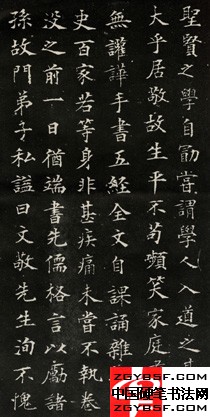 聖賢之學自勵嘗謂學人入道之
大乎居敬故生平不苟嚬笑家庭
無讙譁手書五經全文自課誦雜
史百家若等身非甚疾痛未嘗不執卷
沒之前一日猶端書先儒格言以勵諸
孫故門弟子私諡曰文敬先生洵不愧
ZGYBSF.COM
中国硬笔书法网
WWW.ZGYBSF.COM